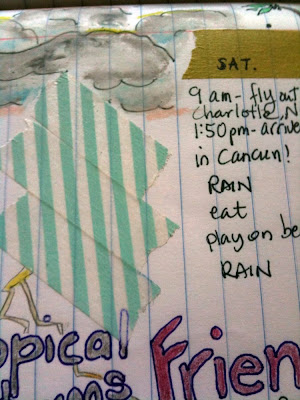 SAT.
9 am - fly out
Charlotte, N
1:50pm - arrive
in Cancun!
RAIN
eat
play on be
RAIN
opical Frien
ms